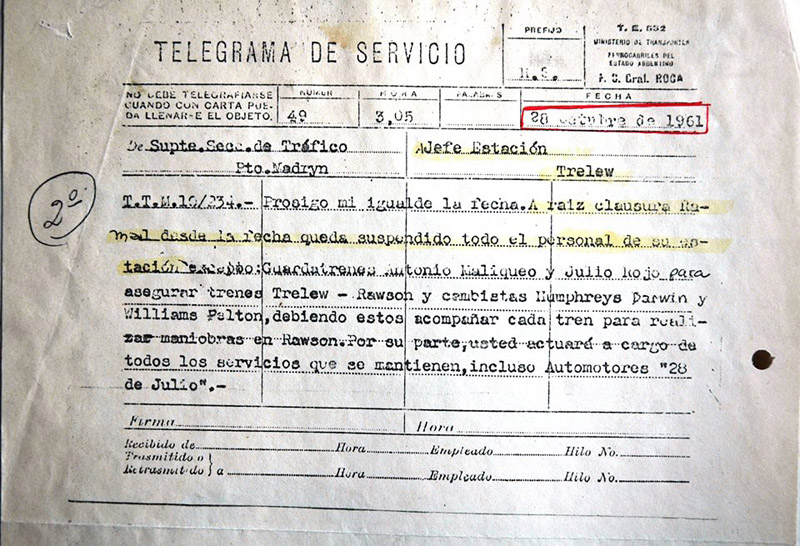 TELEGRAMA DE SERVICIO
PREFIJO
T. E. 532
MINISTERIO DE TRANSPORTES
FERROCARRILES DEL
ESTADO ARGENTINO
F. C. Gral. ROCA
NO DEBE TELEGRAFIARSE
CUANDO CON CARTA PUE-
DA LLENARSE EL OBJETO.
NUMER
49
HORA
3,05
PALABRAS
FECHA
28 octubre de 1961
De Supte.Secc.de Tráfico
Pto.Madryn
A Jefe Estación
Trelew
2º
T.T.M.10/234.- Prosigo mi igualde la fecha.A raiz clausura Ra-
mal desde la fecha queda suspendido todo el personal de su es-
tación excepto:Guardatrenes Antonio Maliqueo y Julio Rojo para
asegurar trenes Trelew - Rawson y cambistas Humphreys Darwin y
Williams Pelton,debiendo estos acompañar cada tren para reali-
zar maniobras en Rawson.Por su parte,usted actuará a cargo de
todos los servicios que se mantienen,incluso Automotores "28
de Julio".-
Firma
Hora
Recibido de Hora Empleado Hilo No.
Trasmitido o
Retrasmitido } a Hora Empleado Hilo No.